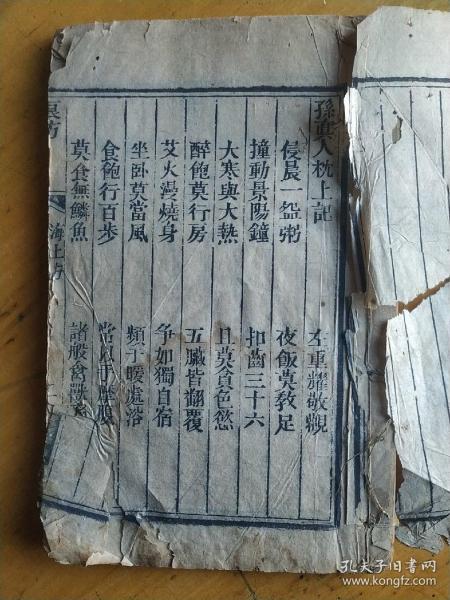 孫真人枕上記
左重耀敬觀
侵晨一盌粥 夜飯莫教足
撞動景陽鐘 扣齒三十六
大寒與大熱 且莫貪色慾
醉飽莫行房 五臟皆翻覆
艾火漫燒身 争如獨自宿
坐卧莫當風 頻于暖處浴
食飽行百步 常以手摩腹
莫食無鱗魚 諸般禽獸
良方
海上方
孔夫子旧书网
www.kongfz.com